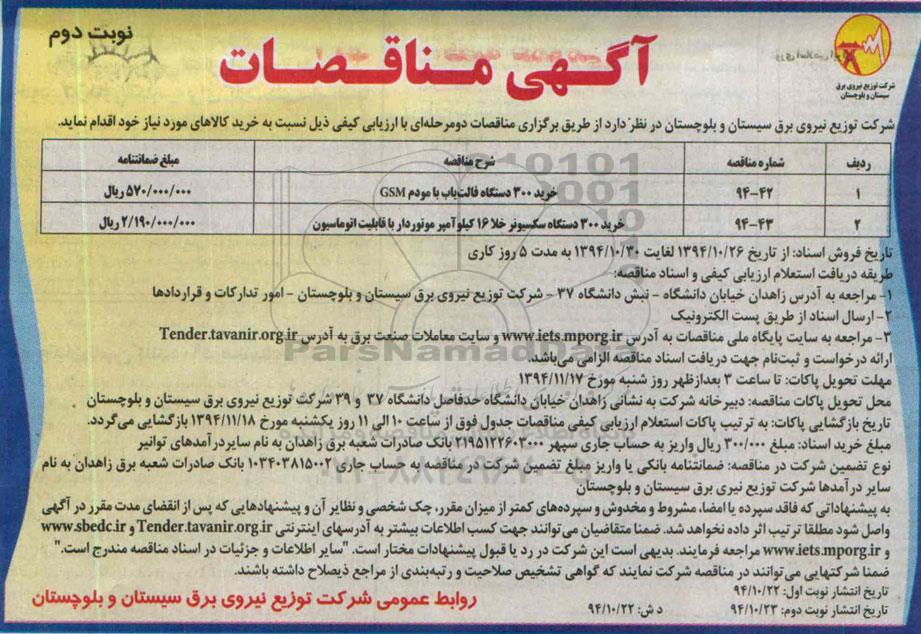 نوبت دوم
آگهی مناقصات
شرکت توزیع نیروی برق
سیستان و بلوچستان
شرکت توزیع نیروی برق سیستان و بلوچستان در نظر دارد از طریق برگزاری مناقصات دومرحله‌ای با ارزیابی کیفی ذیل نسبت به خرید کالاهای مورد نیاز خود اقدام نماید.
ردیف شماره مناقصه شرح مناقصه مبلغ ضمانتنامه
۱ ۹۴-۴۲ خرید ۳۰۰ دستگاه فالت‌یاب با مودم GSM ۵۷۰/۰۰۰/۰۰۰ ریال
۲ ۹۴-۴۳ خرید ۳۰۰ دستگاه سکسیونر خلا ۱۶ کیلو آمپر موتوردار با قابلیت اتوماسیون ۲/۱۹۰/۰۰۰/۰۰۰ ریال
تاریخ فروش اسناد: از تاریخ ۱۳۹۴/۱۰/۲۶ لغایت ۱۳۹۴/۱۰/۳۰ به مدت ۵ روز کاری
طریقه دریافت استعلام ارزیابی کیفی و اسناد مناقصه:
۱- مراجعه به آدرس زاهدان خیابان دانشگاه - نبش دانشگاه ۳۷ - شرکت توزیع نیروی برق سیستان و بلوچستان - امور تدارکات و قراردادها
۲- ارسال اسناد از طریق پست الکترونیک
۳- مراجعه به سایت پایگاه ملی مناقصات به آدرس www.iets.mporg.ir و سایت معاملات صنعت برق به آدرس Tender.tavanir.org.ir
ارائه درخواست و ثبت‌نام جهت دریافت اسناد مناقصه الزامی می‌باشد.
مهلت تحویل پاکات: تا ساعت ۳ بعدازظهر روز شنبه مورخ ۱۳۹۴/۱۱/۱۷
محل تحویل پاکات مناقصه: دبیرخانه شرکت به نشانی زاهدان خیابان دانشگاه حدفاصل دانشگاه ۳۷ و ۳۹ شرکت توزیع نیروی برق سیستان و بلوچستان
تاریخ بازگشایی پاکات: به ترتیب پاکات استعلام ارزیابی کیفی مناقصات جدول فوق از ساعت ۱۰ الی ۱۱ روز یکشنبه مورخ ۱۳۹۴/۱۱/۱۸ بازگشایی می‌گردد.
مبلغ خرید اسناد: مبلغ ۳۰۰/۰۰۰ ریال واریز به حساب جاری سپهر ۲۱۹۵۱۲۲۶۰۳۰۰۰ بانک صادرات شعبه برق زاهدان به نام سایر درآمدهای توانیر
نوع تضمین شرکت در مناقصه: ضمانتنامه بانکی یا واریز مبلغ تضمین شرکت در مناقصه به حساب جاری ۱۰۳۴۰۳۸۱۵۰۰۲ بانک صادرات شعبه برق زاهدان به نام
سایر درآمدها شرکت توزیع نیری برق سیستان و بلوچستان
به پیشنهاداتی که فاقد سپرده یا امضا، مشروط و مخدوش و سپرده‌های کمتر از میزان مقرر، چک شخصی و نظایر آن و پیشنهادهایی که پس از انقضای مدت مقرر در آگهی
واصل شود مطلقا ترتیب اثر داده نخواهد شد. ضمنا متقاضیان می‌توانند جهت کسب اطلاعات بیشتر به آدرسهای اینترنتی Tender.tavanir.org.ir و www.sbedc.ir
و www.iets.mporg.ir مراجعه فرمایند. بدیهی است این شرکت در رد یا قبول پیشنهادات مختار است. "سایر اطلاعات و جزئیات در اسناد مناقصه مندرج است."
ضمنا شرکتهایی می‌توانند در مناقصه شرکت نمایند که گواهی تشخیص صلاحیت و رتبه‌بندی از مراجع ذیصلاح داشته باشند.
تاریخ انتشار نوبت اول: ۹۴/۱۰/۲۲
تاریخ انتشار نوبت دوم: ۹۴/۱۰/۲۳ د ش: ۹۴/۱۰/۲۲
روابط عمومی شرکت توزیع نیروی برق سیستان و بلوچستان
ParsNamadData